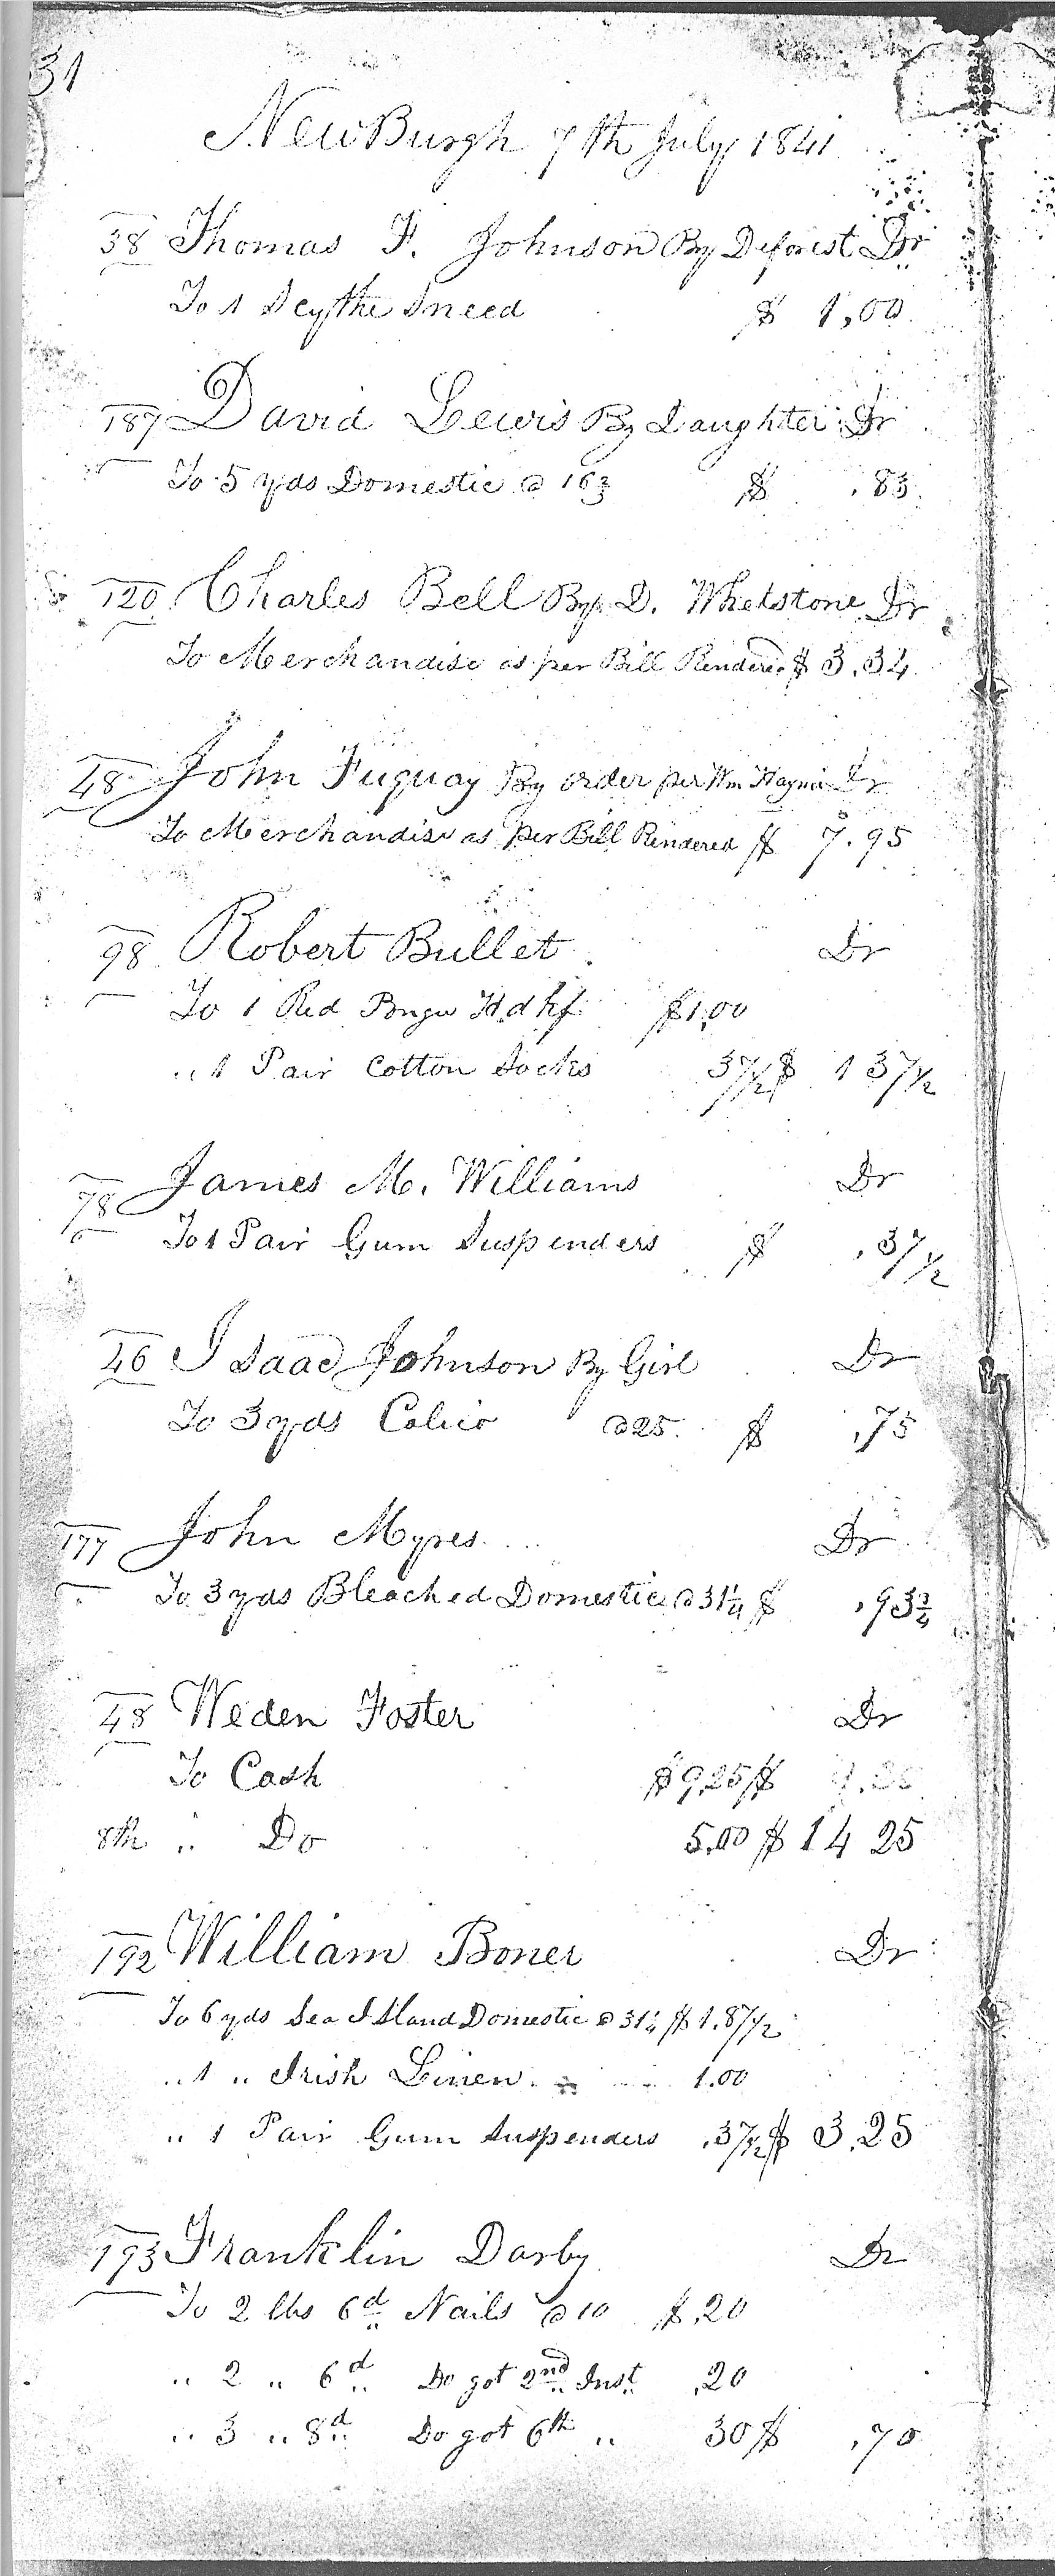 31
NewBurgh 7th July 1841
38 Thomas F. Johnson By Deforest Dr
To 1 Scythe Sneed $ 1,00
187 David Lewis By Daughter Dr
To 5 yds Domestic @ 16 2/3 $ .83
120 Charles Bell By D. Whetstone Dr
To Merchandise as per Bill Rendered $ 3.34
48 John Fuquay By order per Wm Dr
To Merchandise as per Bill Rendered $ 7.95
98 Robert Bullet Dr
To 1 Red Hdkf $1,00
„ 1 Pair Cotton Socks 37 1/2 $ 1 37 1/2
78 James M. Williams Dr
To 1 Pair Gum Suspenders $ .37 1/2
46 Isaac Johnson By Girl Dr
To 3 yds Calico @ 25 $ .75
177 John Myres Dr
To 3 yds Bleached Domestic @ 31 1/4 $ .93 3/4
48 Weden Foster Dr
To Cash $ 9,25 $ 9.25
8th „ Do 5.00 $ 14 25
192 William Boner Dr
To 6 yds Sea Island Domestic @ 31 1/4 $ 1.87 1/2
„ 1 „ Irish Linen 1.00
„ 1 Pair Gum Suspenders .37 1/2 $ 3.25
193 Franklin Darby Dr
To 2 lbs 6d Nails @ 10 $ .20
„ 2 „ 6d Do got 2nd Inst .20
„ 3 „ 8d Do got 6th „ 30 $ .70